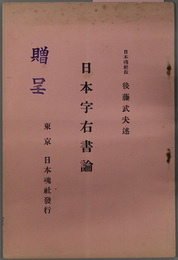 日本魂社長 後藤武夫述
日本字右書論
東京 日本魂社發行
贈呈